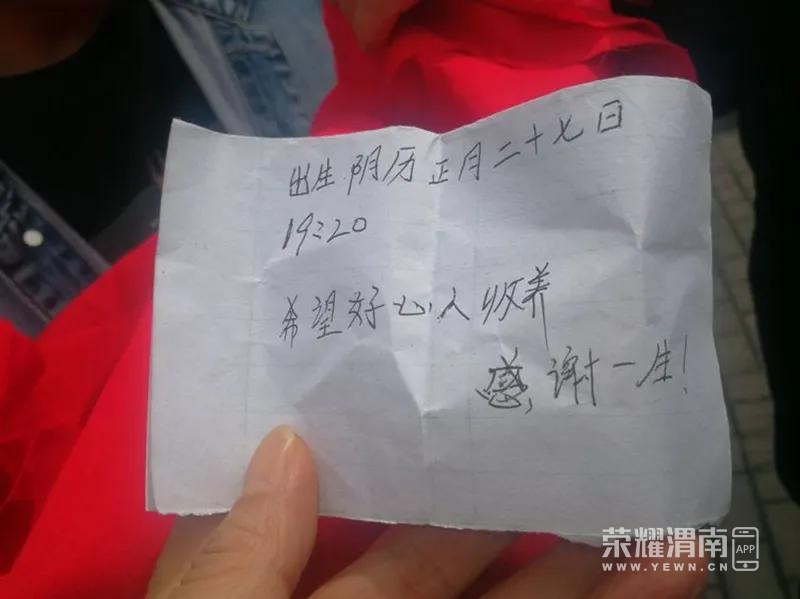 出生阴历正月二十七日
19:20
希望好心人收养
感谢一生!
荣耀渭南 APP
WWW.YEWN.CN